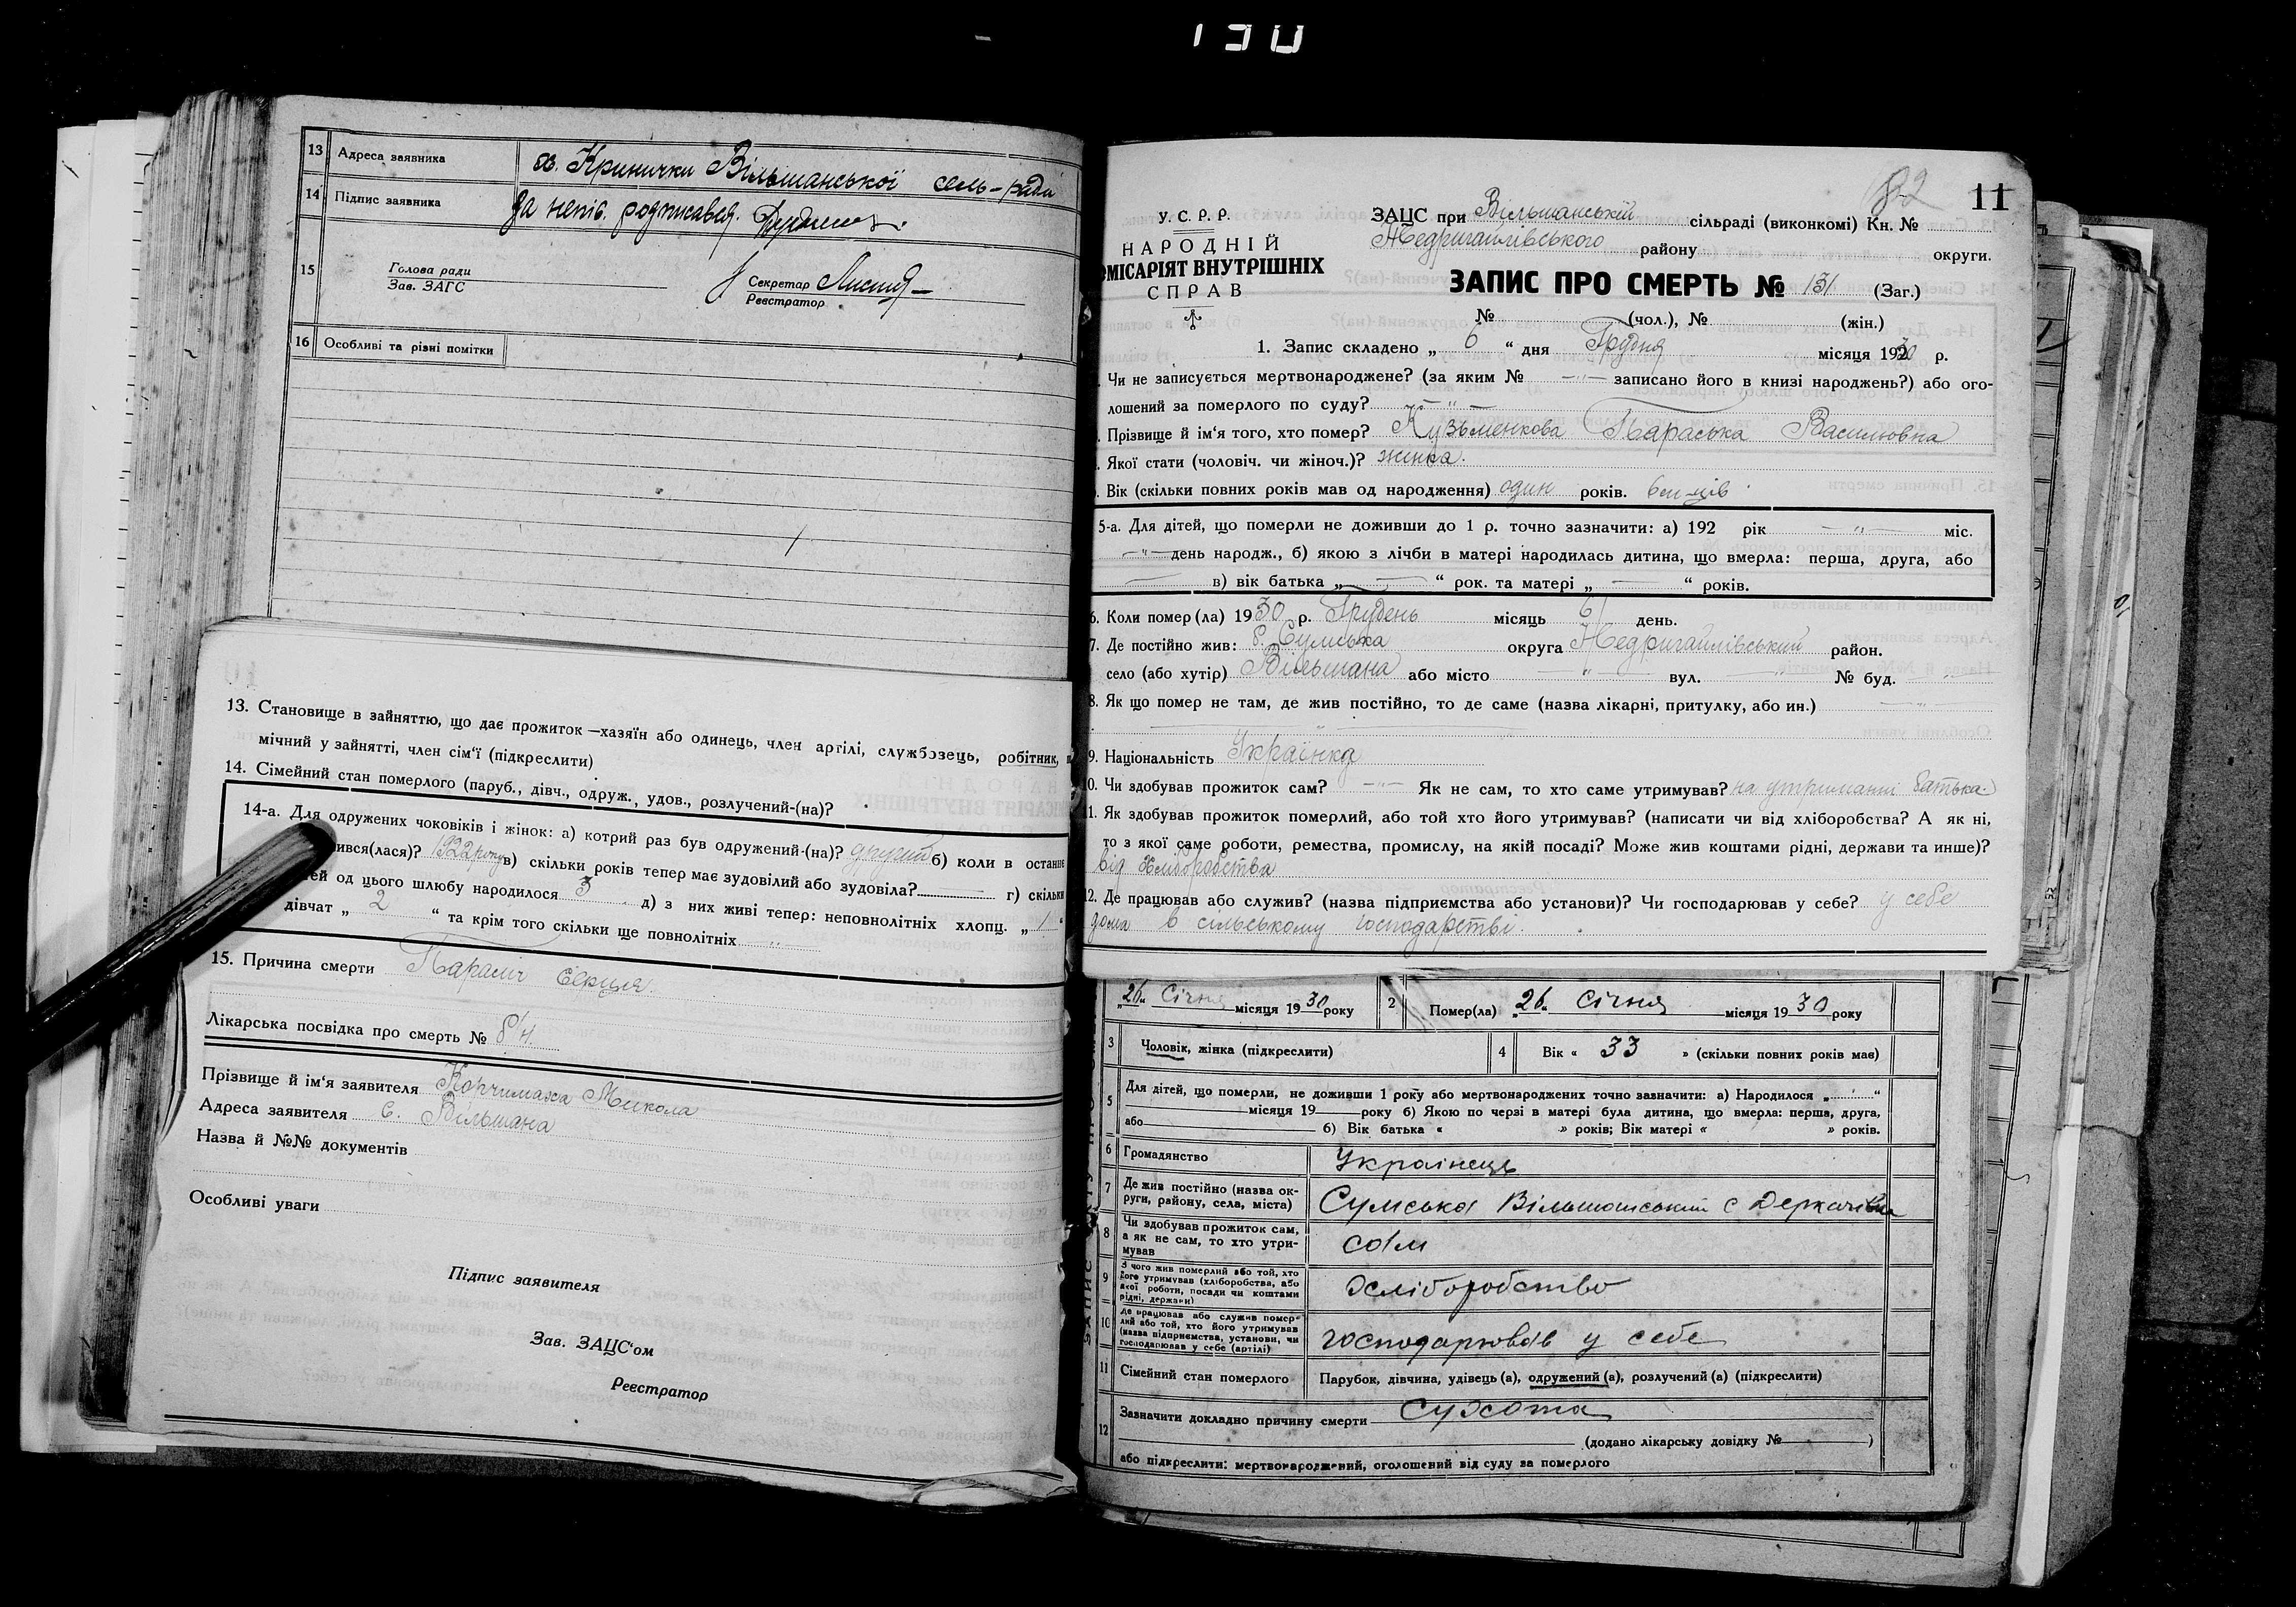 130
13 Адреса заявника х. Кринички Вільшанської сель-ради
14 Підпис заявника За непис. родписався.
15 Голова ради
Зав. ЗАГС
Секретар
Реєстратор
16 Особливі та різні помітки
13. Становище в зайняттю, що дає прожиток —хазяїн або одинець, член артілі, службовець, робітник,
мічний у зайнятті, член сім'ї (підкреслити)
14. Сімейний стан померлого (паруб., дівч., одруж., удов., розлучений-(на)?
14-а. Для одружених чоковіків і жінок: а) котрий раз був одружений-(на)? другий б) коли в останнє
ився(лася)? 1922 року в) скільки років тепер має зудовілий або зудовіла? — г) скільки
ей од цього шлюбу народилося 3 д) з них живі тепер: неповнолітніх хлопц. „ 1 “
дівчат „ 2 “ та крім того скільки ще повнолітніх "
15. Причина смерти Параліч серця.
Лікарська посвідка про смерть № б/н.
Прізвище й ім'я заявителя Микола
Адреса заявителя с. Вільшана
Назва й №№ документів
Особливі уваги
Підпис заявителя
Зав. ЗАЦС'ом
Реєстратор
11
У. С. Р. Р.
НАРОДНІЙ
ОМІСАРІЯТ ВНУТРІШНІХ
СПРАВ
ЗАЦС при Вільшанській сільраді (виконкомі) Кн. №
Недригайлівського району округи.
ЗАПИС ПРО СМЕРТЬ № 131 (Заг.)
№ (чол.), № (жін.)
1. Запис складено „ 6 “ дня Грудня місяця 1930 р.
Чи не записується мертвонароджене? (за яким № —"— записано його в книзі народжень?) або ого-
лошений за померлого по суду? —"—
Прізвище й ім'я того, хто помер? Кузьменкова Параська Василювна
Якої стати (чоловіч. чи жіноч.)? жінка.
Вік (скільки повних років мав од народження) один років. 6 м-ців
5-а. Для дітей, що померли не доживши до 1 р. точно зазначити: а) 192 рік —"— міс.
—"— день народж., б) якою з лічби в матері народилась дитина, що вмерла: перша, друга, або
— в) вік батька „ — “ рок. та матері „ — “ років.
6. Коли помер (ла) 1930 р. Грудень місяць 6 день.
7. Де постійно жив: б. Сумська округа Недригайлівський район.
село (або хутір) Вільшана або місто —"— вул. —"— № буд. "
8. Як що помер не там, де жив постійно, то де саме (назва лікарні, притулку, або ин.) —"—
9. Національність Українка
10. Чи здобував прожиток сам? —"— Як не сам, то хто саме утримував? на утриманні батька.
11. Як здобував прожиток померлий, або той хто його утримував? (написати чи від хліборобства? А як ні,
то з якої саме роботи, ремества, промислу, на якій посаді? Може жив коштами рідні, держави та инше)?
від хліборобства
12. Де працював або служив? (назва підприємства або установи)? Чи господарював у себе? у себе
дома в сільському господарстві.
„26“ Січня місяця 1930 року 2 Помер(ла) „26“ Січня місяця 1930 року
3 Чоловік, жінка (підкреслити) 4 Вік « 33 » (скільки повних років має)
5 Для дітей, що померли, не доживши 1 року або мертвонароджених точно зазначити: а) Народилося „ “
місяця 19 року б) Якою по черзі в матері була дитина, що вмерла: перша, друга,
або б) Вік батька « » років; Вік матері « » років.
6 Громадянство Українець
7 Де жив постійно (назва ок-
руги, району, села, міста) Сумська Вільшанський с Деркачівка
8 Чи здобував прожиток сам,
а як не сам, то хто утри-
мував сам
9 З чого жив померлий або той, хто
його утримував (хліборобства, або
якої роботи, посади чи коштами
рідні, держави) хліборобство
10 Де працював або служив помер-
лий або той, хто його утримував
(назва підприємства, установи, чи
господарював у себе (артілі) господарював у себе
11 Сімейний стан померлого Парубок, дівчина, удівець (а), одружений (а), розлучений (а) (підкреслити)
12 Зазначити докладно причину смерти Сухота
(додано лікарську довідку № )
або підкреслити: мертвонароджений, оголошений від суду за померлого